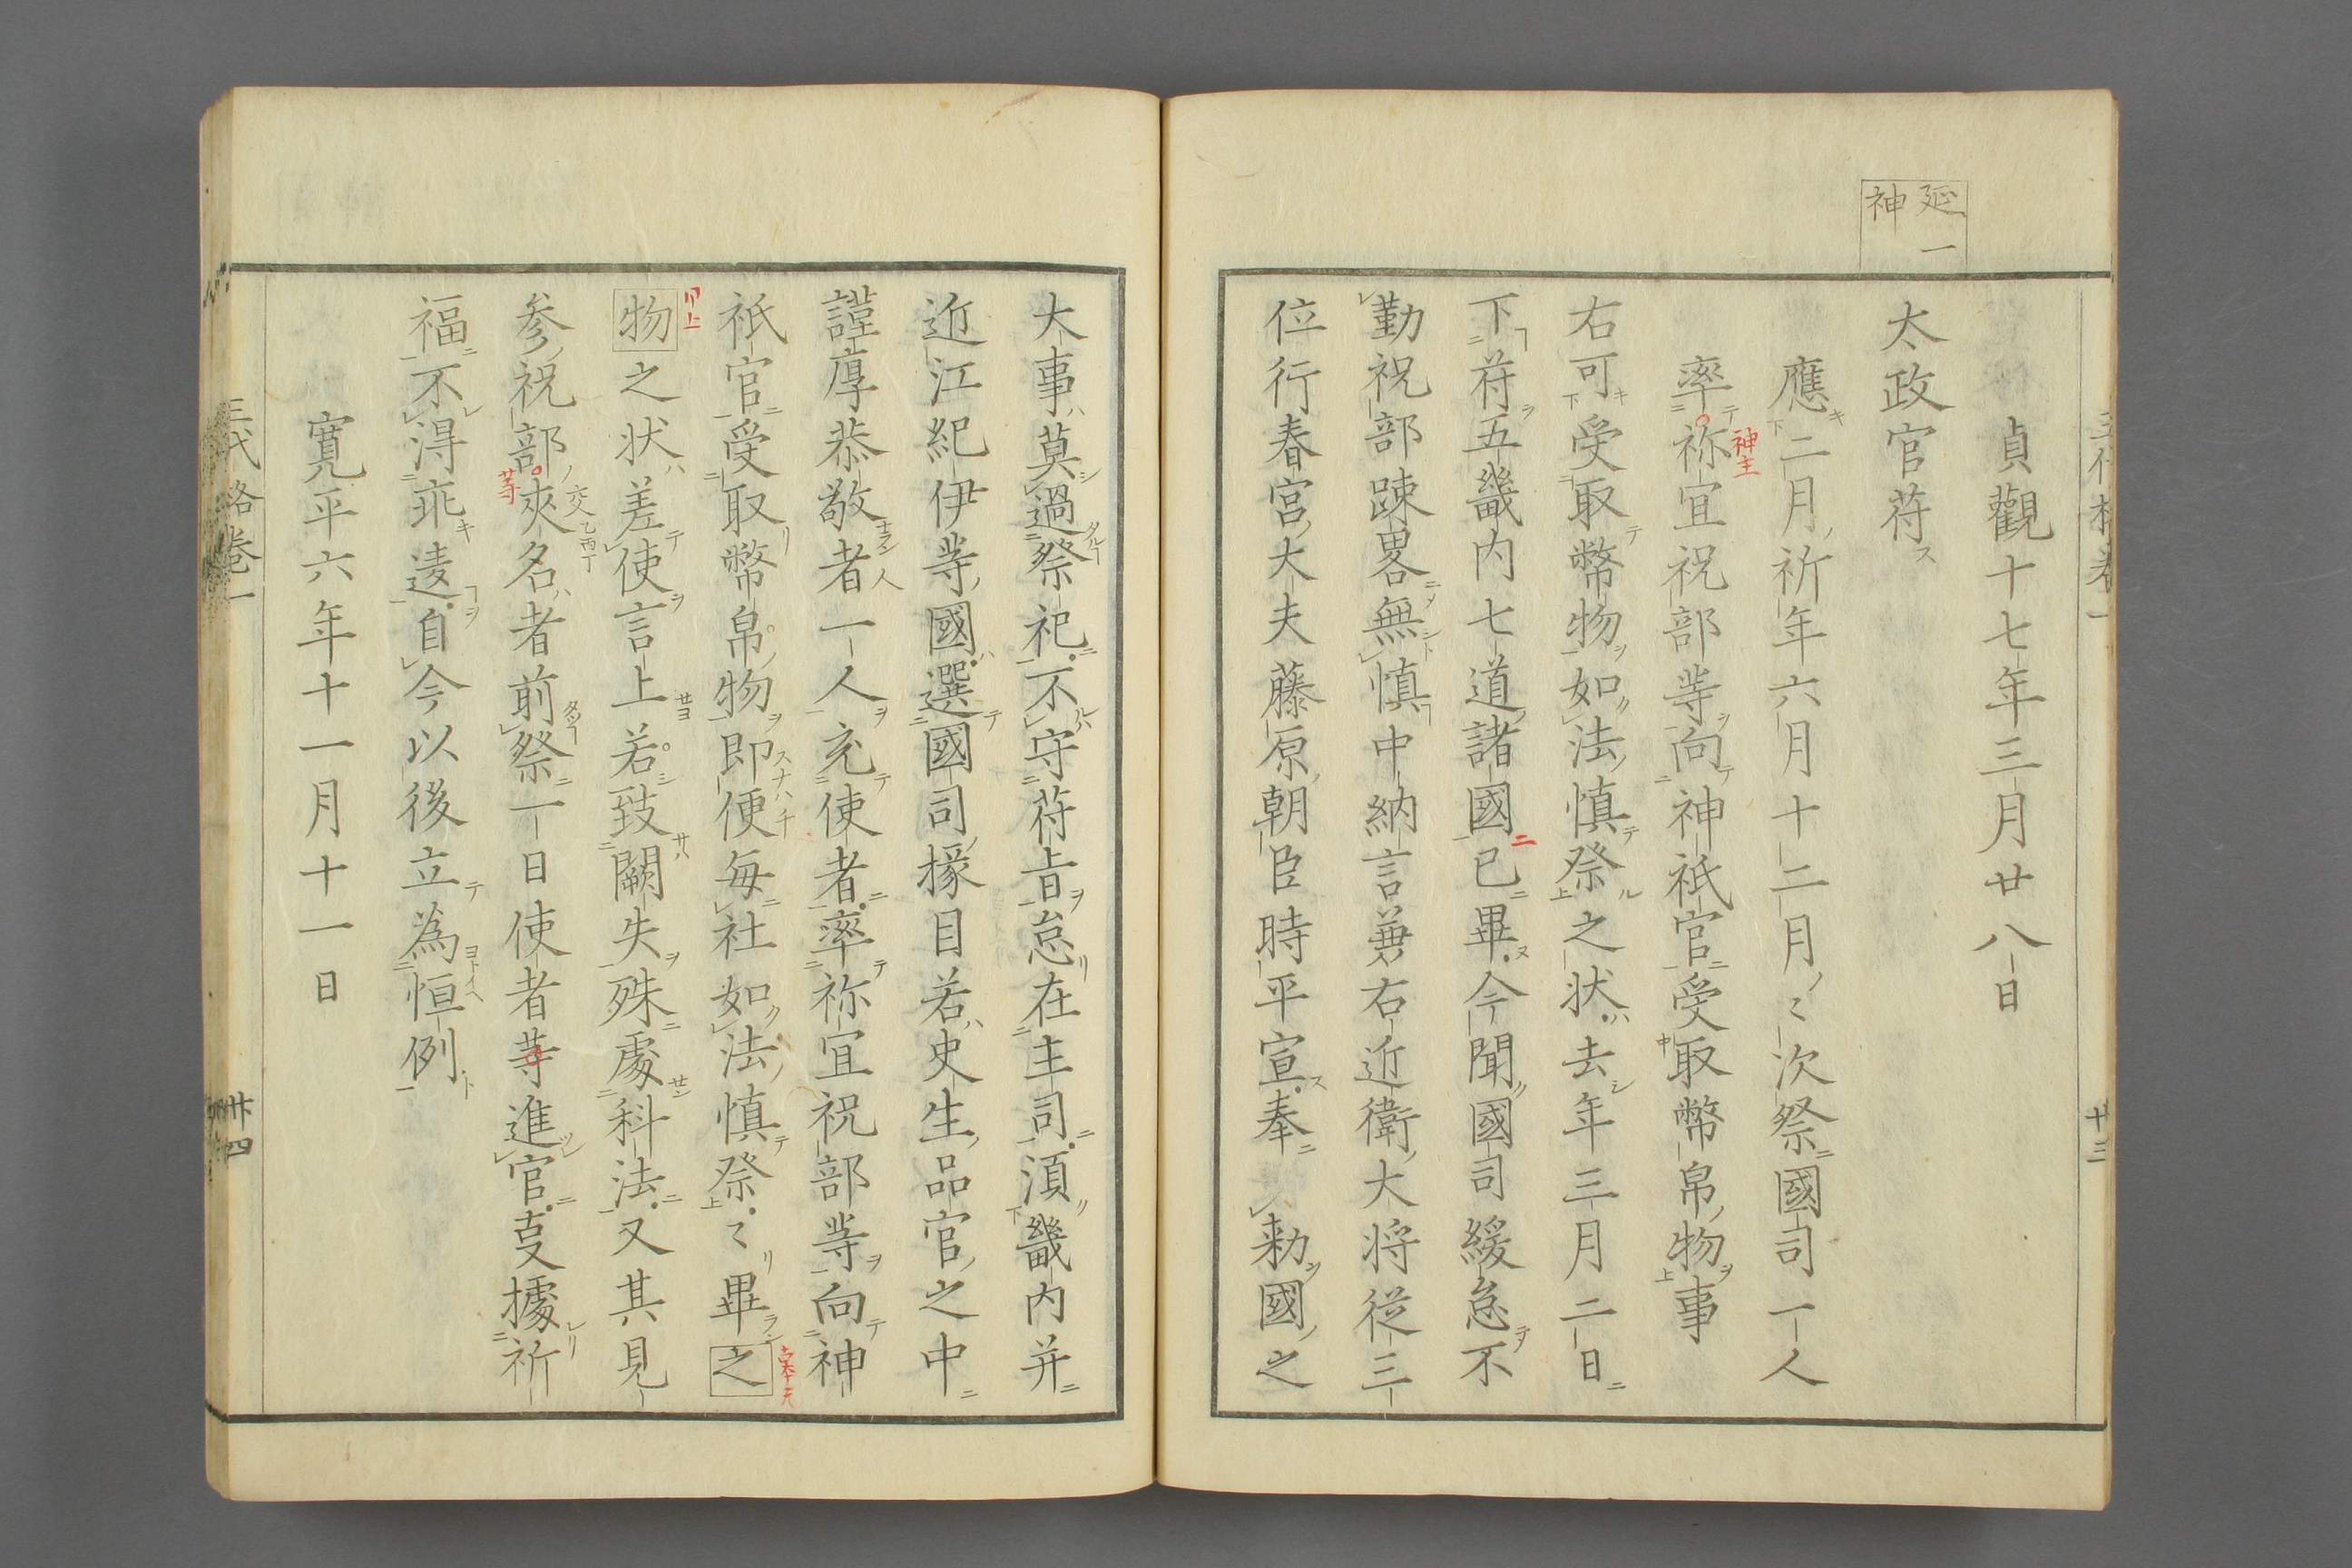 延一
神
貞觀十七年三月廿八日
太政官苻
應二月祈年六月十二月〻次祭國司一人
率祢宜祝部䓁向神祇官受取幣帛物事
神主
右可受取幣物如法慎祭之状去年三月二日
下苻五畿内七道諸國已畢今聞國司緩怠不
勤祝部踈畧無慎中納言兼右近衛大将従三
位行春宮大夫藤原朝臣時平宣奉　勅國之
大事莫過祭祀不守苻旨怠在主司湏畿内并
近江紀伊䓁國選國司掾目若史生品官之中
謹厚恭敬者一人充使者率祢宜祝部䓁向神
祇官受取幣帛物即便毎社如法慎祭〻畢之
物之状差使言上若致闕失殊處科法又其見
参祝部夾名者前祭一日使者䓁進官㕝據祈
䓁
交乙丙丁
福不得乖違自今以後立為恒例
寛平六年十一月十一日
三代格卷一
廿三
三代格卷一
廿四